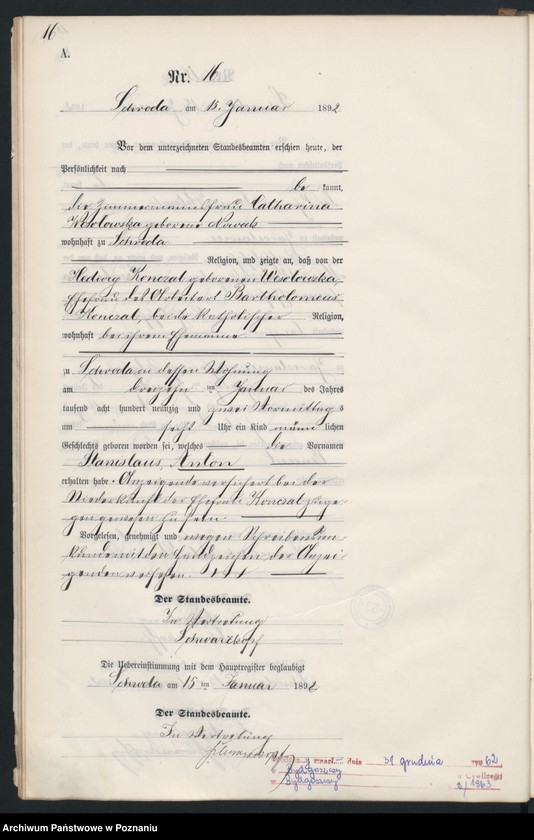 16
A.
Nr. 16
Schroda am 15. Januar 1892
Vor dem unterzeichneten Standesbeamten erschien heute, der
Persönlichkeit nach
be kannt,
die Zimmermannfrau Catharina
Wesolowska geborene Nowak
wohnhaft zu Schroda
Religion, und zeigte an, daß von der
Hedwig Konczal geborenen Wesolowska,
Ehefrau des Arbeiters Bartholomeus
Konczal, beide katholischer Religion,
wohnhaft bei ihrem Ehemanne
zu Schroda in dessen Wohnung
am dreizehn ten Januar des Jahres
tausend acht hundert neunzig und zwei Vormittags
um sechs Uhr ein Kind männ lichen
Geschlechts geboren worden sei, welches die Vornamen
Stanislaus, Anton
erhalten habe. Anzeigende versichert bei der
Niederkunft der Ehefrau Konczal zuge
gen gewesen zu sein.
Vorgelesen, genehmigt und wegen Schreibensun
kunde mit den Handzeichen der Anzei
genden versehen. +++
Der Standesbeamte.
In Vertretung
Schwarzkopf
Die Uebereinstimmung mit dem Hauptregister beglaubigt
Schroda am 15 ten Januar 1892
Der Standesbeamte.
In Vertretung
zmarł dnia 31 grudnia 62
Bydgoszcz
Bydgoszcz 2/1963
Archiwum Państwowe w Poznaniu